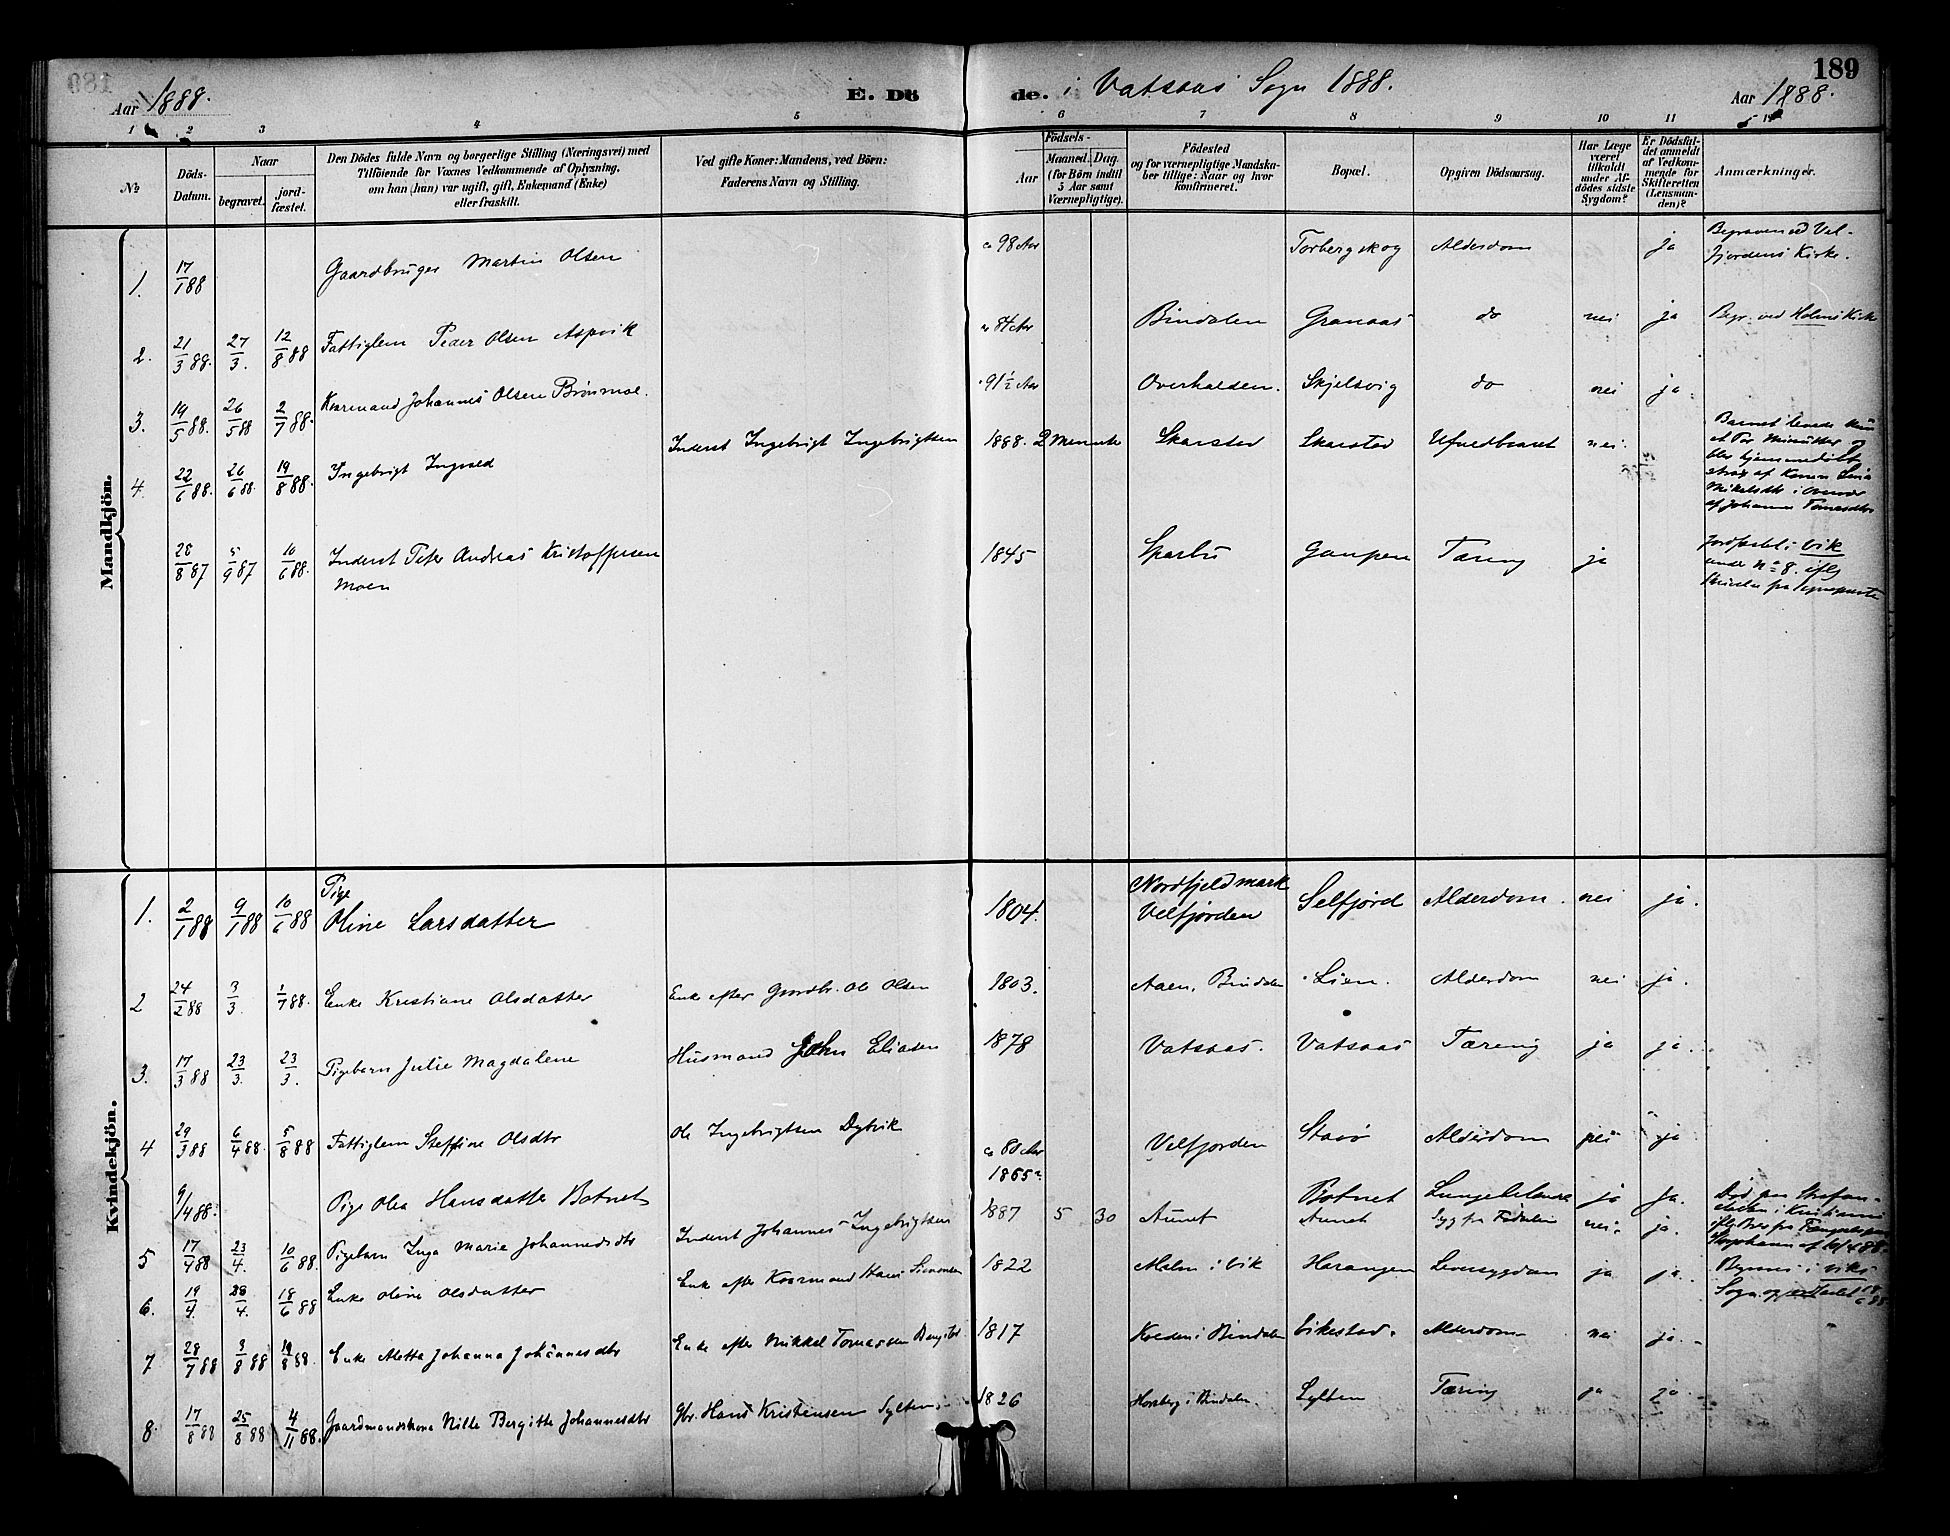 189
Aar 1888.
E. Dö de. i Vatsaas Sogn 1888.
Aar 1888.
1 2 3 4 5 6 7 8 9 10 11
№
Döds-Datum.
Naar
begravet.
jord-fæstet.
Den Dödes fulde Navn og borgerlige Stilling (Næringsvei) med
Tilföiende for Voxnes Vedkommende af Oplysning,
om han (hun) var ugift, gift, Enkemand (Enke)
eller fraskilt.
Ved gifte Koner: Mandens, ved Börn:
Faderens Navn og Stilling.
Födsels-
Aar
Maaned. Dag.
(for Börn indtil
5 Aar samt
Værnepligtige).
Födested
og for værnepligtige Mandska-
ber tillige: Naar og hvor
konfirmeret.
Bopæl.
Opgiven Dödsaarsag.
Har Læge
været
tilkaldt
under Af-
dödes sidste
Sygdom?
Er Dödsfal-
det anmeldt
af Vedkom-
mende for
Skifteretten
(Lensman-
den)?
Anmærkninger.
Mandkjön.
1. 17/1 88 Gaardbruger Martin Olsen ca 98 Aar Torbergskog Alderdom ja Begraven ved Vel-
fjordens Kirke.
2. 21/3 88. 27/3. 12/8 88 Fattiglem Peder Olsen Aspvik ca 84 Aar Bindalen Granaas do nei ja Begr. ved Holms Kirke
3. 19/5 88. 26/5 88 2/7 88. Kaarmand Johannes Olsen Brönmoe. 91½ Aar Overhalsen. Skjelsvig do nei ja.
4. 22/6 88. 26/6 88. 19/8 88. Ingebrigt Ingvald Inderst Ingebrigt Ingebrigtsen 1888. 2 Minuter Skarstad Skarstad Ufuldbaaret nei. Barnet levede kun
et Par Minutter og
blev hjemmedöbt
strax af Konen
af Johanna
28/8 87 5/9 87 10/6 88. Inderst Peter Andreas Kristoffersen
Moen 1845 Sparbu Gaupen Tæring ja Jordfæstet i Vik
under № 8. iflg
Kvindekjön.
1. 2/1 88 9/1 88 10/6 88 Pige
Oline Larsdatter 1804. Nordfjeldmark
Velfjorden Selfjord Alderdom. nei ja.
2 24/2 88 3/3. 1/7 88. Enke Kristiane Olsdatter Enke efter Gaardbr. Ole Olsen 1803. Aaen, Bindalen Lien. Alderdom nei ja.
3. 17/3 88 23/3. 23/3. Pigebarn Julie Magdalene Husmand John Eliasen 1878 Vatsaas. Vatsaas Tæring ja ja.
4 29/3 88 6/4 88. 5/8 88 Fattiglem Steffine Olsdtr Ole Ingebrigtsen Dybvik ca 80 Aar Velfjorden Stavö Alderdom nei ja
9/4 88. Pige Olea Hansdatter Botnet 1865? Botnet ja ja. Död paa Strafan-
stalten i Kristiania
5 17/4 88 23/4. 10/6 88. Pigebarn Inga Marie Johannesdtr Inderst Johannes Ingebrigtsen 1887 5 30 Aunet Aunet Syg fra Födselen nei. ja.
6. 19/4. 28/4. 18/6 88 Enke Oline Olsdatter Enke efter Kaarmand Hans Simonsen 1822 Malm i Vik Horangen Leversygdom ja ja. i Viks
Sogn og
7 28/7 88 3/8 88 19/8 88. Enke Aletta Johanna Johannesdtr Enke efter Mikkel Tomassen 1817 i Bindalen Vikestad. Alderdom nei ja.
8. 17/8 88 25/8 88 4/11 88. Gaardmandskona Nille Bergitte Johannesdtr Gbr. Hans Kristensen Sylten 1826 Horsberg i Bindalen. Sylten Tæring ja ja